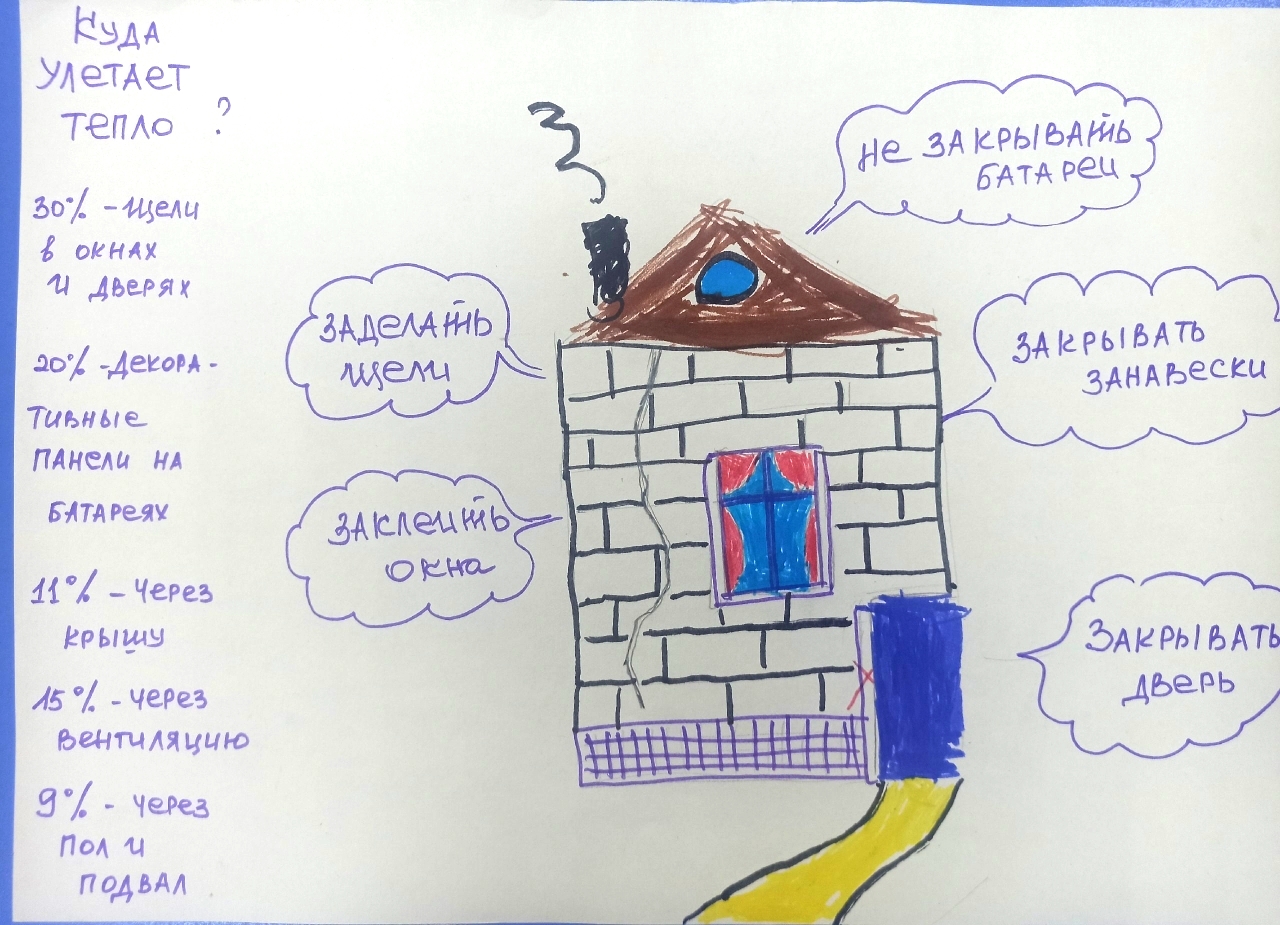 Куда
улетает
тепло ?
30% - щели
в окнах
и дверях
20% - Декора-
тивные
панели на
батареях
11% - Через
крышу
15% - через
вентиляцию
9% - через
пол и
подвал
Не закрывать
батареи
Заделать
щели
Закрывать
занавески
Заклеить
окна
Закрывать
дверь